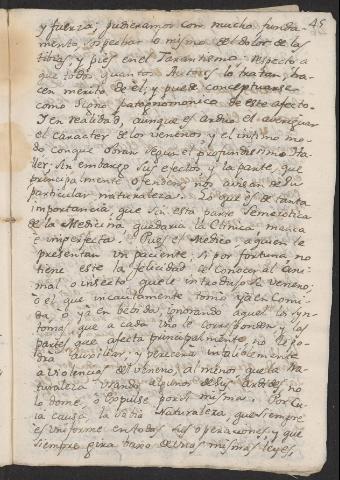 45
y fuerza; pudieramos con mucho funda-
mento, sospechar lo mismo del dolor de las
tibias, y pies en el Tarantismo respecto a
que todos quantos Autores lo tratan, ha-
cen merito de el; y puede conceptuarse
como signo patognomonico de este afecto.
Y en realidad, aunque es arduo el averiguar
el caracter de los venenos, y el intimo mo-
do con que obran segun el profundissimo Ha-
ller; sin embargo sus efectos, y la parte que
principalmente ofenden, nos avisan de su
particular naturaleza. Lo que es de tanta
importancia, que sin esta parte Semeiotica
de la Medicina quedaria la Clinica manca
e imperfecta. Pues el Medico, a quien le
presentan un paciente, si por fortuna no
tiene este la felicidad de conocer al ani-
mal, o insecto, que le introdujo su veneno;
o el que incautamente tomó ya en comi-
da, o ya en bebida, ignorando aquel los syn-
tomas, que a cada uno le corresponden y las
partes que afecta principalmente, no le po-
drá auxiliar, y perecerá infaliblemente
a violencias del veneno, al menos que la Na-
turaleza usando algunos de sus ardides, no
lo dome, o expulse por si misma. Por cu-
ia causa la sabia Naturaleza, que siempre
es uniforme en todas sus operaciones, y que
siempre gira baxo de unas mismas leyes,